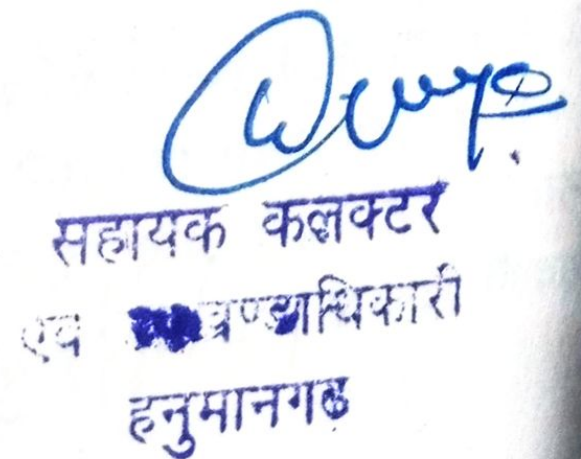 सहायक कलक्टर
एवं खण्डाधिकारी
हनुमानगढ